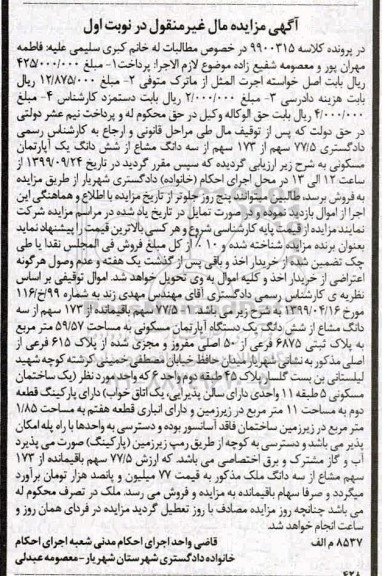 آگهی مزایده مال غیرمنقول در نوبت اول
در پرونده کلاسه ۹۹۰۰۳۱۵ در خصوص مطالبات له خانم کبری سلیمی علیه: فاطمه
مهران پور و معصومه شفیع زاده موضوع لازم الاجرا: پرداخت ۱- مبلغ ۴۲۵/۰۰۰/۰۰۰
ریال بابت اصل خواسته اجرت المثل از ماترک متوفی ۲- مبلغ ۱۲/۸۷۵/۰۰۰ ریال
بابت هزینه دادرسی ۳- مبلغ ۲/۰۰۰/۰۰۰ ریال بابت دستمزد کارشناس ۴- مبلغ
۴/۰۰۰/۰۰۰ ریال بابت حق الوکاله وکیل در حق محکوم له و پرداخت نیم عشر دولتی
در حق دولت که پس از توقیف مال طی مراحل قانونی و ارجاع به کارشناس رسمی
دادگستری ۷۷/۵ سهم از ۱۷۳ سهم از سه دانگ مشاع از شش دانگ یک آپارتمان
مسکونی به شرح زیر ارزیابی گردیده که سپس مقرر گردید در تاریخ ۱۳۹۹/۰۹/۲۴ از
ساعت ۱۲ الی ۱۳ در محل اجرای احکام (خانواده) دادگستری شهریار از طریق مزایده
به فروش برسد. طالبین میتوانند پنج روز جلوتر از تاریخ مزایده با اطلاع و هماهنگی این
اجرا از اموال بازدید نموده و در صورت تمایل در تاریخ یاد شده در مراسم مزایده شرکت
نمایند مزایده از قیمت پایه کارشناسی شروع و هر کسی بالاترین قیمت را پیشنهاد نماید
بعنوان برنده مزایده شناخته شده و ۱۰ ٪ از کل مبلغ فروش فی المجلس نقدا یا طی
چک تضمین شده از خریدار اخذ و باقی پس از گذشت یک هفته و عدم وصول هرگونه
اعتراضی از خریدار اخذ و کلیه اموال به وی تحویل خواهد شد. اموال توقیفی بر اساس
نظریه ی کارشناس رسمی دادگستری آقای مهندس مهدی زند به شماره ۹۹/خ/۱۱۶
مورخ ۱۳۹۹/۰۴/۱۶ به شرح زیر می باشد: ۱- ۷۷/۵ سهم باقیمانده از ۱۷۳ سهم از سه
دانگ مشاع از شش دانگ یک دستگاه آپارتمان مسکونی به مساحت ۵۹/۵۷ متر مربع
به پلاک ثبتی ۶۸۷۵ فرعی از ۵۰ اصلی مفروز و مجزی شده از پلاک ۶۱۵ فرعی از
اصلی مذکور به نشانی شهریار میدان حافظ خیابان مصطفی خمینی کرشته کوچه شهید
لیلستانی بن بست گلسار پلاک ۴۵ طبقه دوم واحد ۶ که واحد مورد نظر (یک ساختمان
مسکونی ۵ طبقه ۱۱ واحدی دارای سالن پذیرایی، یک اتاق خواب) دارای پارکینگ قطعه
دوم به مساحت ۱۱ متر مربع در زیرزمین و دارای انباری قطعه هفتم به مساحت ۱/۸۵
متر مربع در زیرزمین ساختمان فاقد آسانسور بوده و دسترسی به واحدها با راه پله امکان
پذیر می باشد و دسترسی به کوچه از طریق رمپ زیرزمین (پارکینگ) صورت می پذیرد
آب و گاز مشترک و برق اختصاصی می باشد. که ارزش ۷۷/۵ سهم باقیمانده از ۱۷۳
سهم مشاع از سه دانگ ملک مذکور به قیمت ۷۷ میلیون و پانصد هزار تومان برآورد
میگردد و صرفا سهام باقیمانده به مزایده و فروش می رسد. ملک در تصرف محکوم له
می باشد چنانچه روز مزایده مصادف با روز تعطیل گردید مزایده در فردای همان روز و
ساعت انجام خواهد شد.
۸۵۳۷ م الف
قاضی واحد اجرای احکام مدنی شعبه اجرای احکام
خانواده دادگستری شهرستان شهریار - معصومه عبدلی
۴۲۸